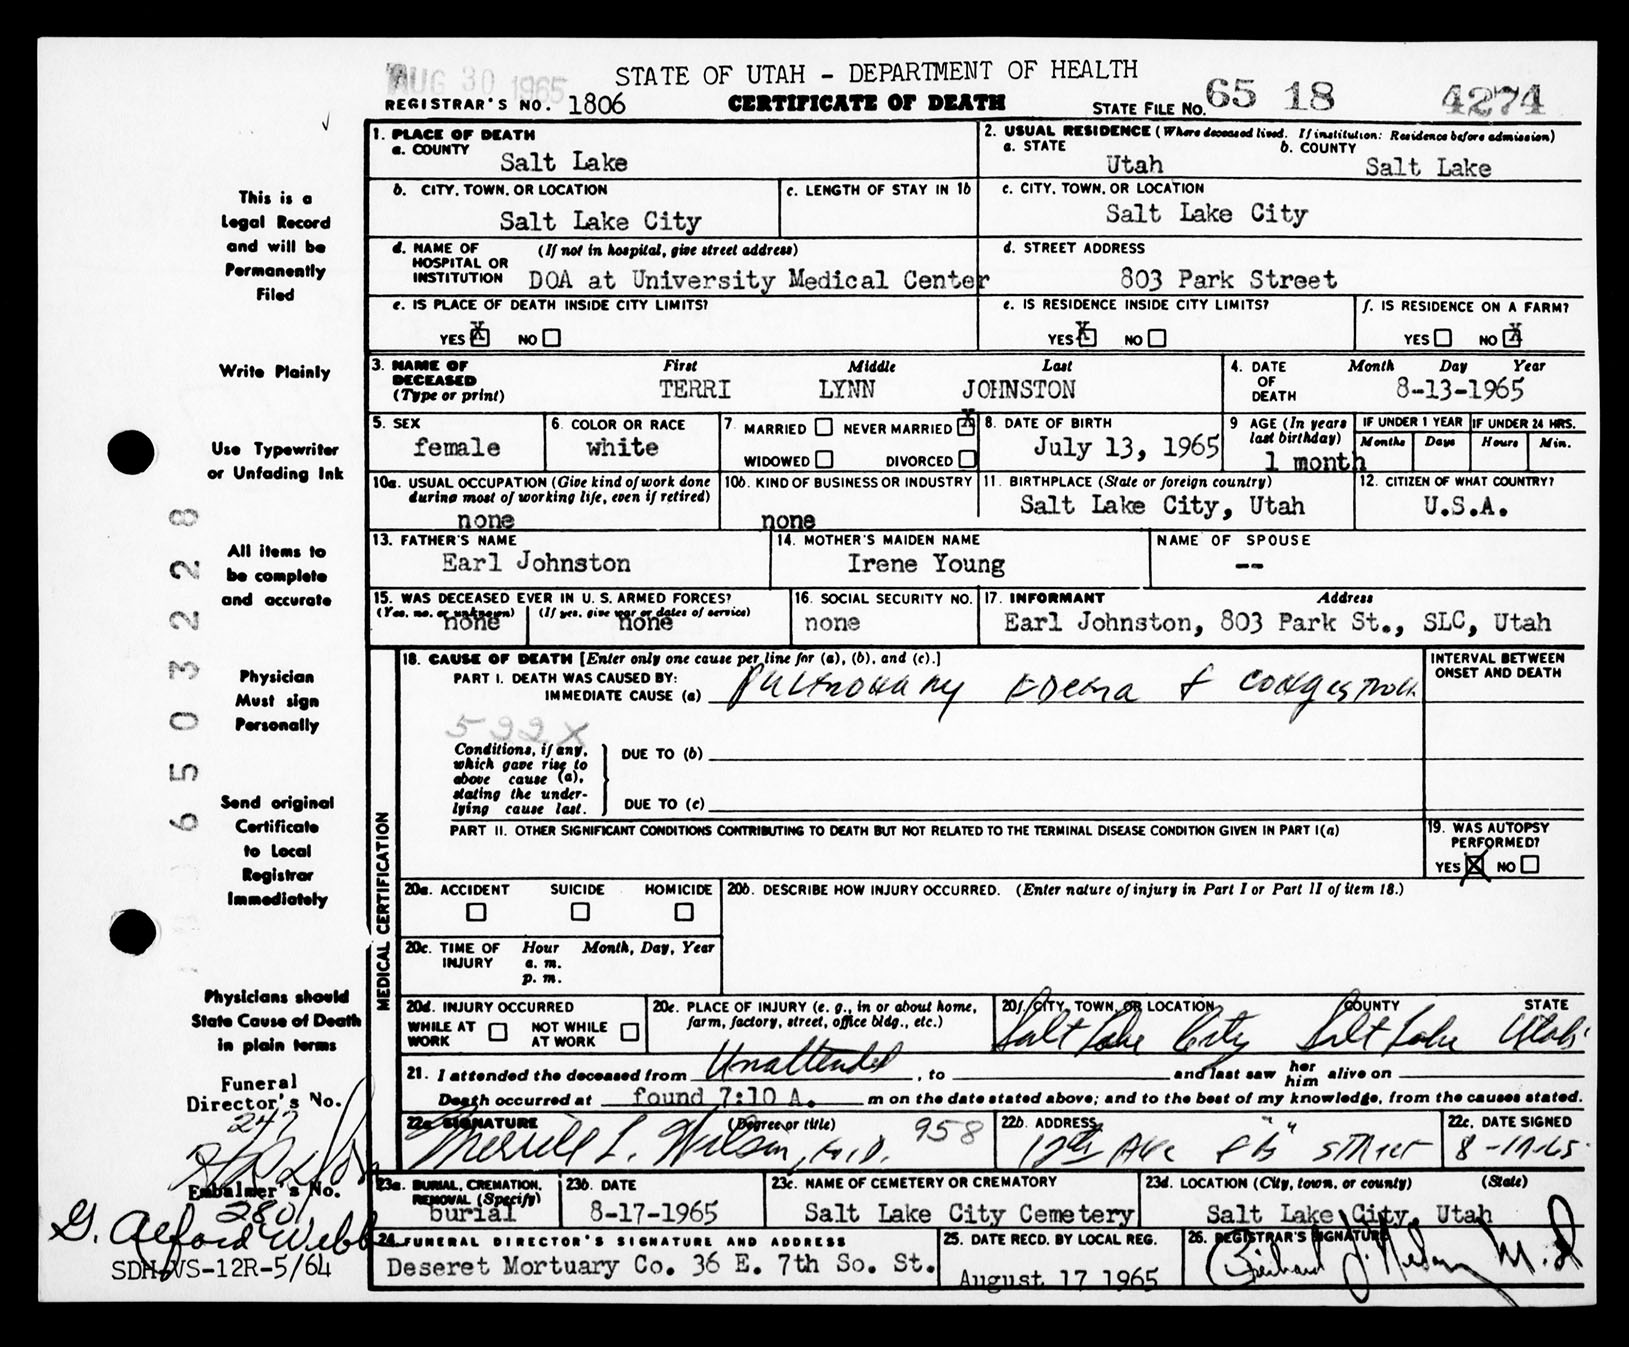 AUG 30 1965
STATE OF UTAH - DEPARTMENT OF HEALTH
REGISTRAR'S NO. 1806 CERTIFICATE OF DEATH STATE FILE NO. 65 18 4274
1. PLACE OF DEATH
a. COUNTY
Salt Lake
2. USUAL RESIDENCE (Where deceased lived. If institution: Residence before admission)
a. STATE b. COUNTY
Utah Salt Lake
b. CITY, TOWN, OR LOCATION
Salt Lake City
c. LENGTH OF STAY IN 1b
c. CITY, TOWN, OR LOCATION
Salt Lake City
d. NAME OF HOSPITAL OR INSTITUTION (If not in hospital, give street address)
DOA at University Medical Center
d. STREET ADDRESS
803 Park Street
e. IS PLACE OF DEATH INSIDE CITY LIMITS?
YES X NO
e. IS RESIDENCE INSIDE CITY LIMITS?
YES X NO
f. IS RESIDENCE ON A FARM?
YES NO X
3. NAME OF DECEASED (Type or print)
First Middle Last
TERRI LYNN JOHNSTON
4. DATE OF DEATH
Month Day Year
8-13-1965
5. SEX
female
6. COLOR OR RACE
white
7. MARRIED NEVER MARRIED X
WIDOWED DIVORCED
8. DATE OF BIRTH
July 13, 1965
9 AGE (In years last birthday)
1 month
IF UNDER 1 YEAR
Months Days
IF UNDER 24 HRS.
Hours Min.
10a. USUAL OCCUPATION (Give kind of work done during most of working life, even if retired)
none
10b. KIND OF BUSINESS OR INDUSTRY
none
11. BIRTHPLACE (State or foreign country)
Salt Lake City, Utah
12. CITIZEN OF WHAT COUNTRY?
U.S.A.
13. FATHER'S NAME
Earl Johnston
14. MOTHER'S MAIDEN NAME
Irene Young
NAME OF SPOUSE
--
15. WAS DECEASED EVER IN U. S. ARMED FORCES?
(Yes, no, or unknown) (If yes, give war or dates of service)
none none
16. SOCIAL SECURITY NO.
none
17. INFORMANT Address
Earl Johnston, 803 Park St., SLC, Utah
MEDICAL CERTIFICATION
18. CAUSE OF DEATH [Enter only one cause per line for (a), (b), and (c).]
PART I. DEATH WAS CAUSED BY:
IMMEDIATE CAUSE (a) Pulmonary Edema & Congestion
522X
Conditions, if any, which gave rise to above cause (a), stating the underlying cause last.
DUE TO (b)
DUE TO (c)
INTERVAL BETWEEN ONSET AND DEATH
PART II. OTHER SIGNIFICANT CONDITIONS CONTRIBUTING TO DEATH BUT NOT RELATED TO THE TERMINAL DISEASE CONDITION GIVEN IN PART I(a)
19. WAS AUTOPSY PERFORMED?
YES X NO
20a. ACCIDENT SUICIDE HOMICIDE
20b. DESCRIBE HOW INJURY OCCURRED. (Enter nature of injury in Part I or Part II of item 18.)
20c. TIME OF INJURY
Hour Month, Day, Year
a. m.
p. m.
20d. INJURY OCCURRED
WHILE AT WORK NOT WHILE AT WORK
20e. PLACE OF INJURY (e. g., in or about home, farm, factory, street, office bldg., etc.)
20f. CITY, TOWN, OR LOCATION COUNTY STATE
Salt Lake City Salt Lake Utah
21. I attended the deceased from Unattended, to and last saw her him alive on
Death occurred at found 7:10 A. m on the date stated above; and to the best of my knowledge, from the causes stated.
22a SIGNATURE (Degree or title)
Merrill L. Wilson, M.D. 958
22b. ADDRESS
12th Ave & "B" Street
22c. DATE SIGNED
8-17-65
23a. BURIAL, CREMATION, REMOVAL (Specify)
burial
23b. DATE
8-17-1965
23c. NAME OF CEMETERY OR CREMATORY
Salt Lake City Cemetery
23d. LOCATION (City, town, or county) (State)
Salt Lake City, Utah
24. FUNERAL DIRECTOR'S SIGNATURE AND ADDRESS
Deseret Mortuary Co. 36 E. 7th So. St.
25. DATE RECD. BY LOCAL REG.
August 17 1965
26. REGISTRAR'S SIGNATURE
Richard J. Nelson M.D
This is a
Legal Record
and will be
Permanently
Filed
Write Plainly
Use Typewriter
or Unfading Ink
All items to
be complete
and accurate
Physician
Must sign
Personally
Send original
Certificate
to Local
Registrar
Immediately
Physicians should
State Cause of Death
in plain terms
Funeral
Director's No.
247
Embalmer's No.
280
G. Alford Webb
SDH-VS-12R-5/64
6 5 0 3 2 2 2 8